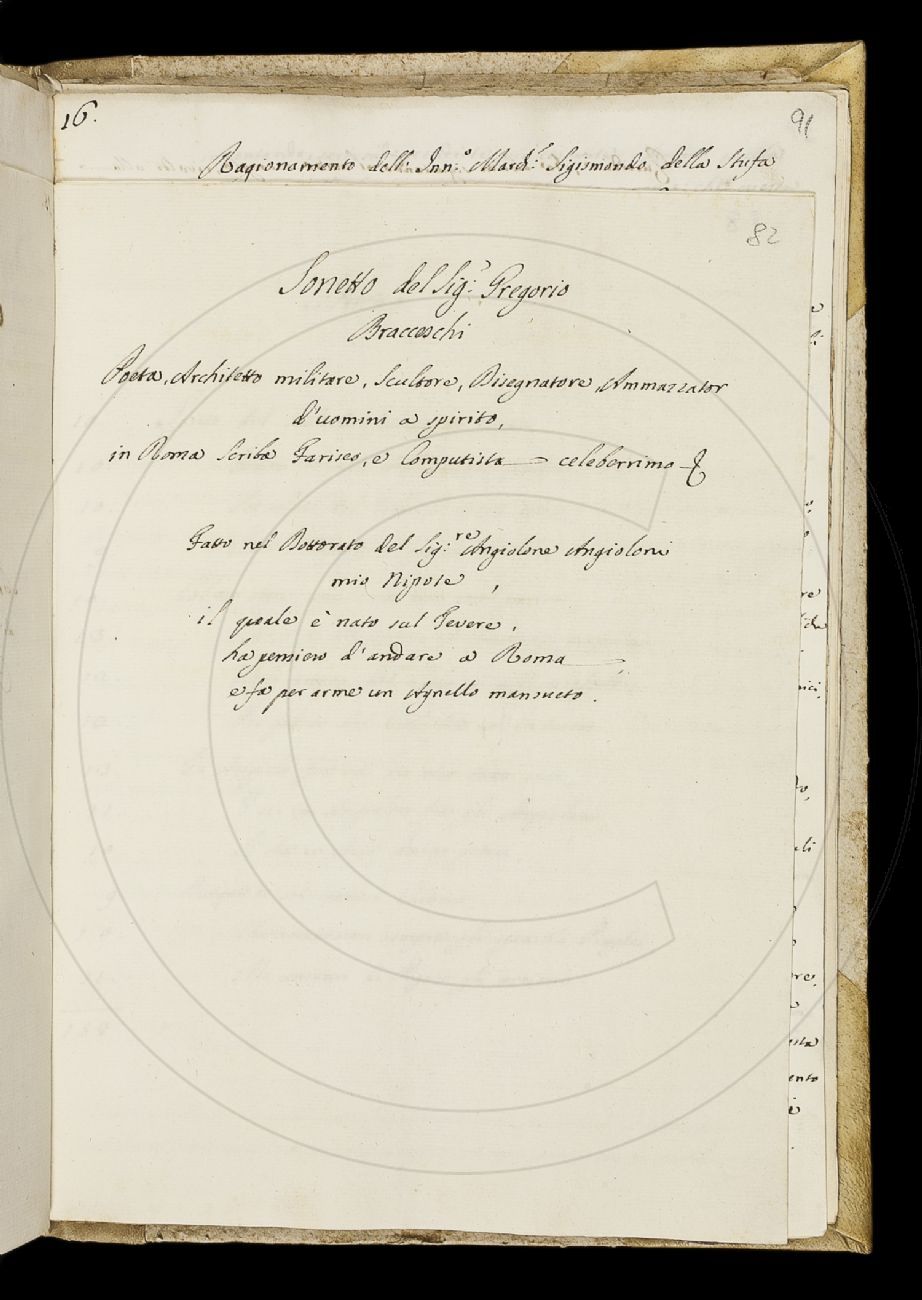 16.
91
Ragionamento dell: Inn:º March: Sigismondo della Stufa
82
Sonetto del Sig:r Gregorio
Bracceschi
Poeta, Architetto militare, Scultore, Disegnatore, Ammazzator
d'uomini a spirito,
in Roma Scriba Fariseo, e Computista — celeberrimo
Fatto nel Dottorato del Sig:re Angiolone Angioloni
mio Nipote,
il quale è nato sul Tevere,
ha pensiero d'andare a Roma —,
e fa per arme un Agnello mansueto.